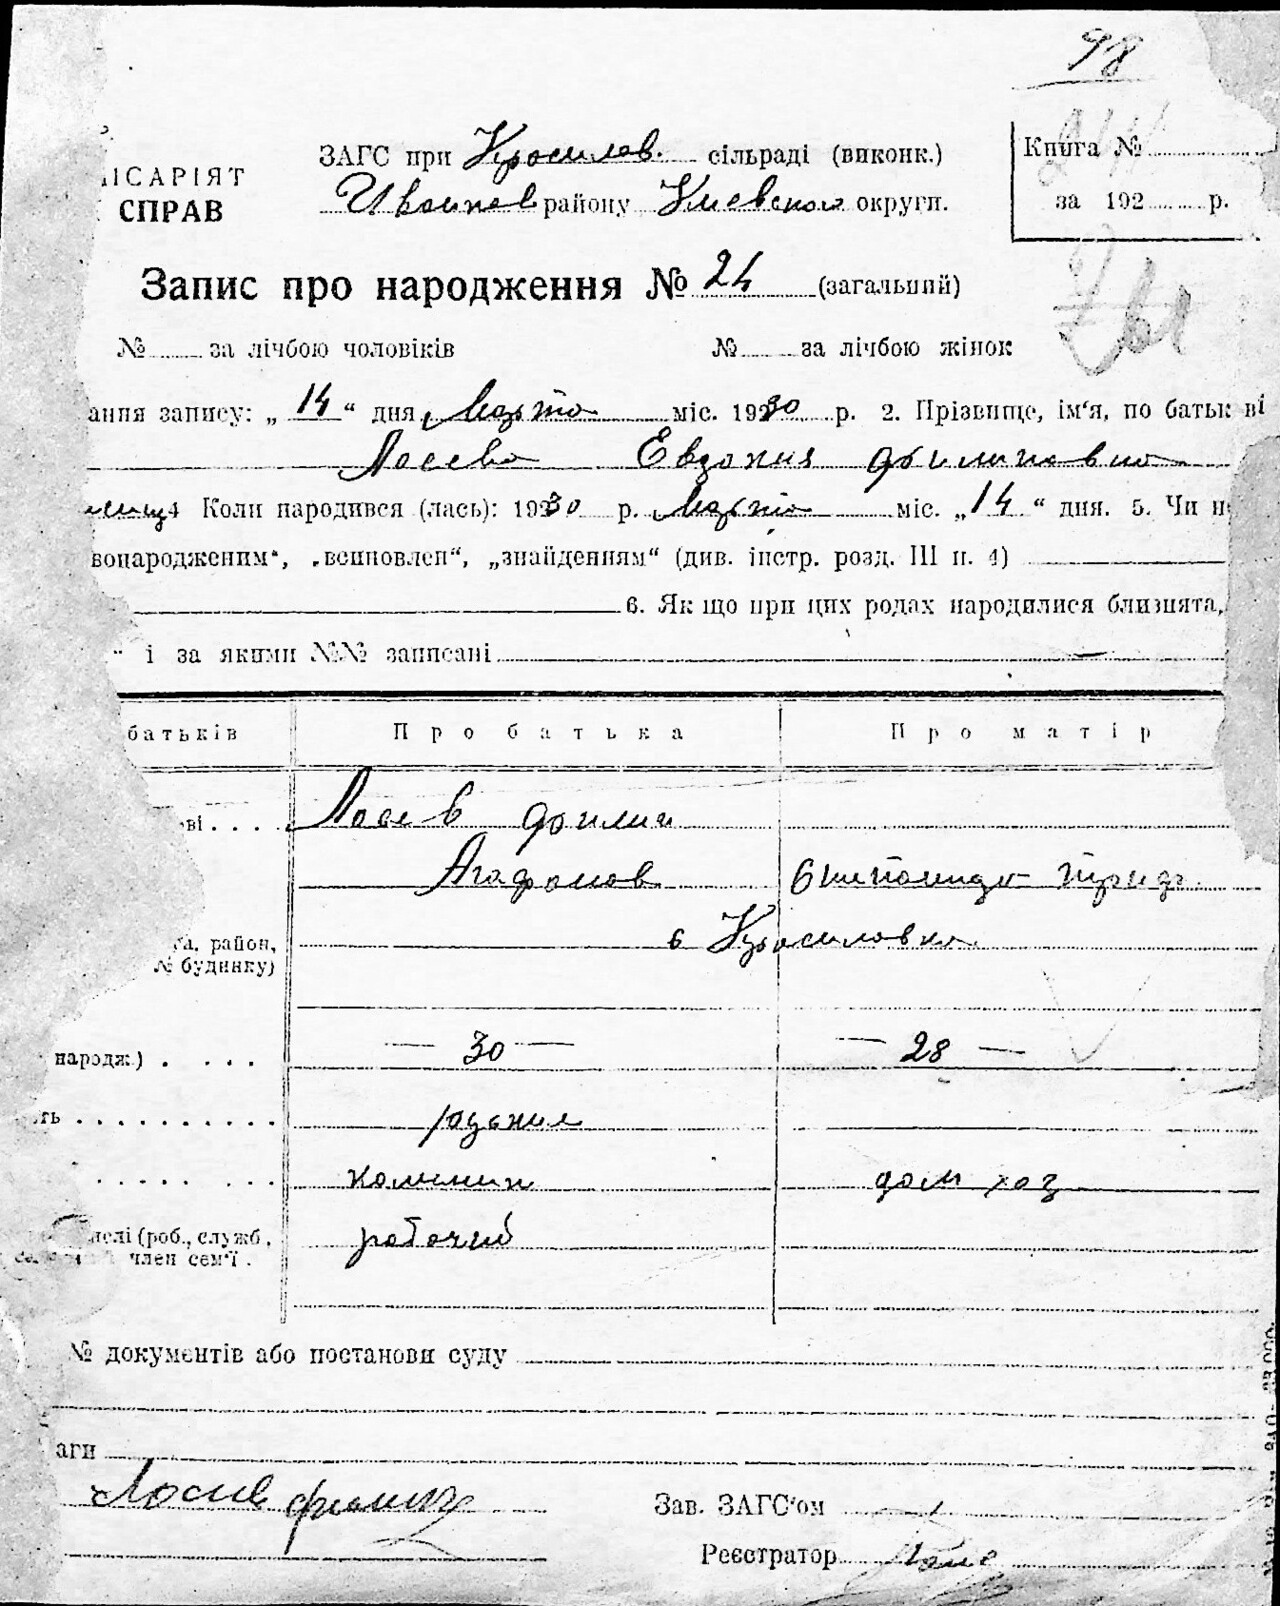 98
ІСАРІЯТ
СПРАВ
ЗАГС при Кросилов. сільраді (виконк.)
району Киевского округи.
Книга №
за 192 р.
Запис про народження № 24 (загальний)
№ за лічбою чоловіків № за лічбою жінок
ання запису: „ 14 “ дня Марта міс. 1930 р. 2. Прізвище, ім‘я, по батьк ві
Лосева Евдокия Филиповна
4 Коли народився (лась): 1930 р. Марта міс. „ 14 “ дня. 5. Чи н
вонародженим“, „всиновлен“, „знайденням“ (див. інстр. розд. III п. 4)
6. Як що при цих родах народилися близнята,
“ і за якими №№ записані
батьків Про батька Про матір
ві . . . . Лосев Филип
Агафонов
та, район, в Кросиловка
№ будинку)
народж.) . . . . — 30 — — 28 —
ть . . . . . . . . . .
дом хоз
(роб., служб, рабочий
член сем‘ї .
№ документів або постанови суду
аги
Лосев Филип
Зав. ЗАГС‘ом
Реєстратор